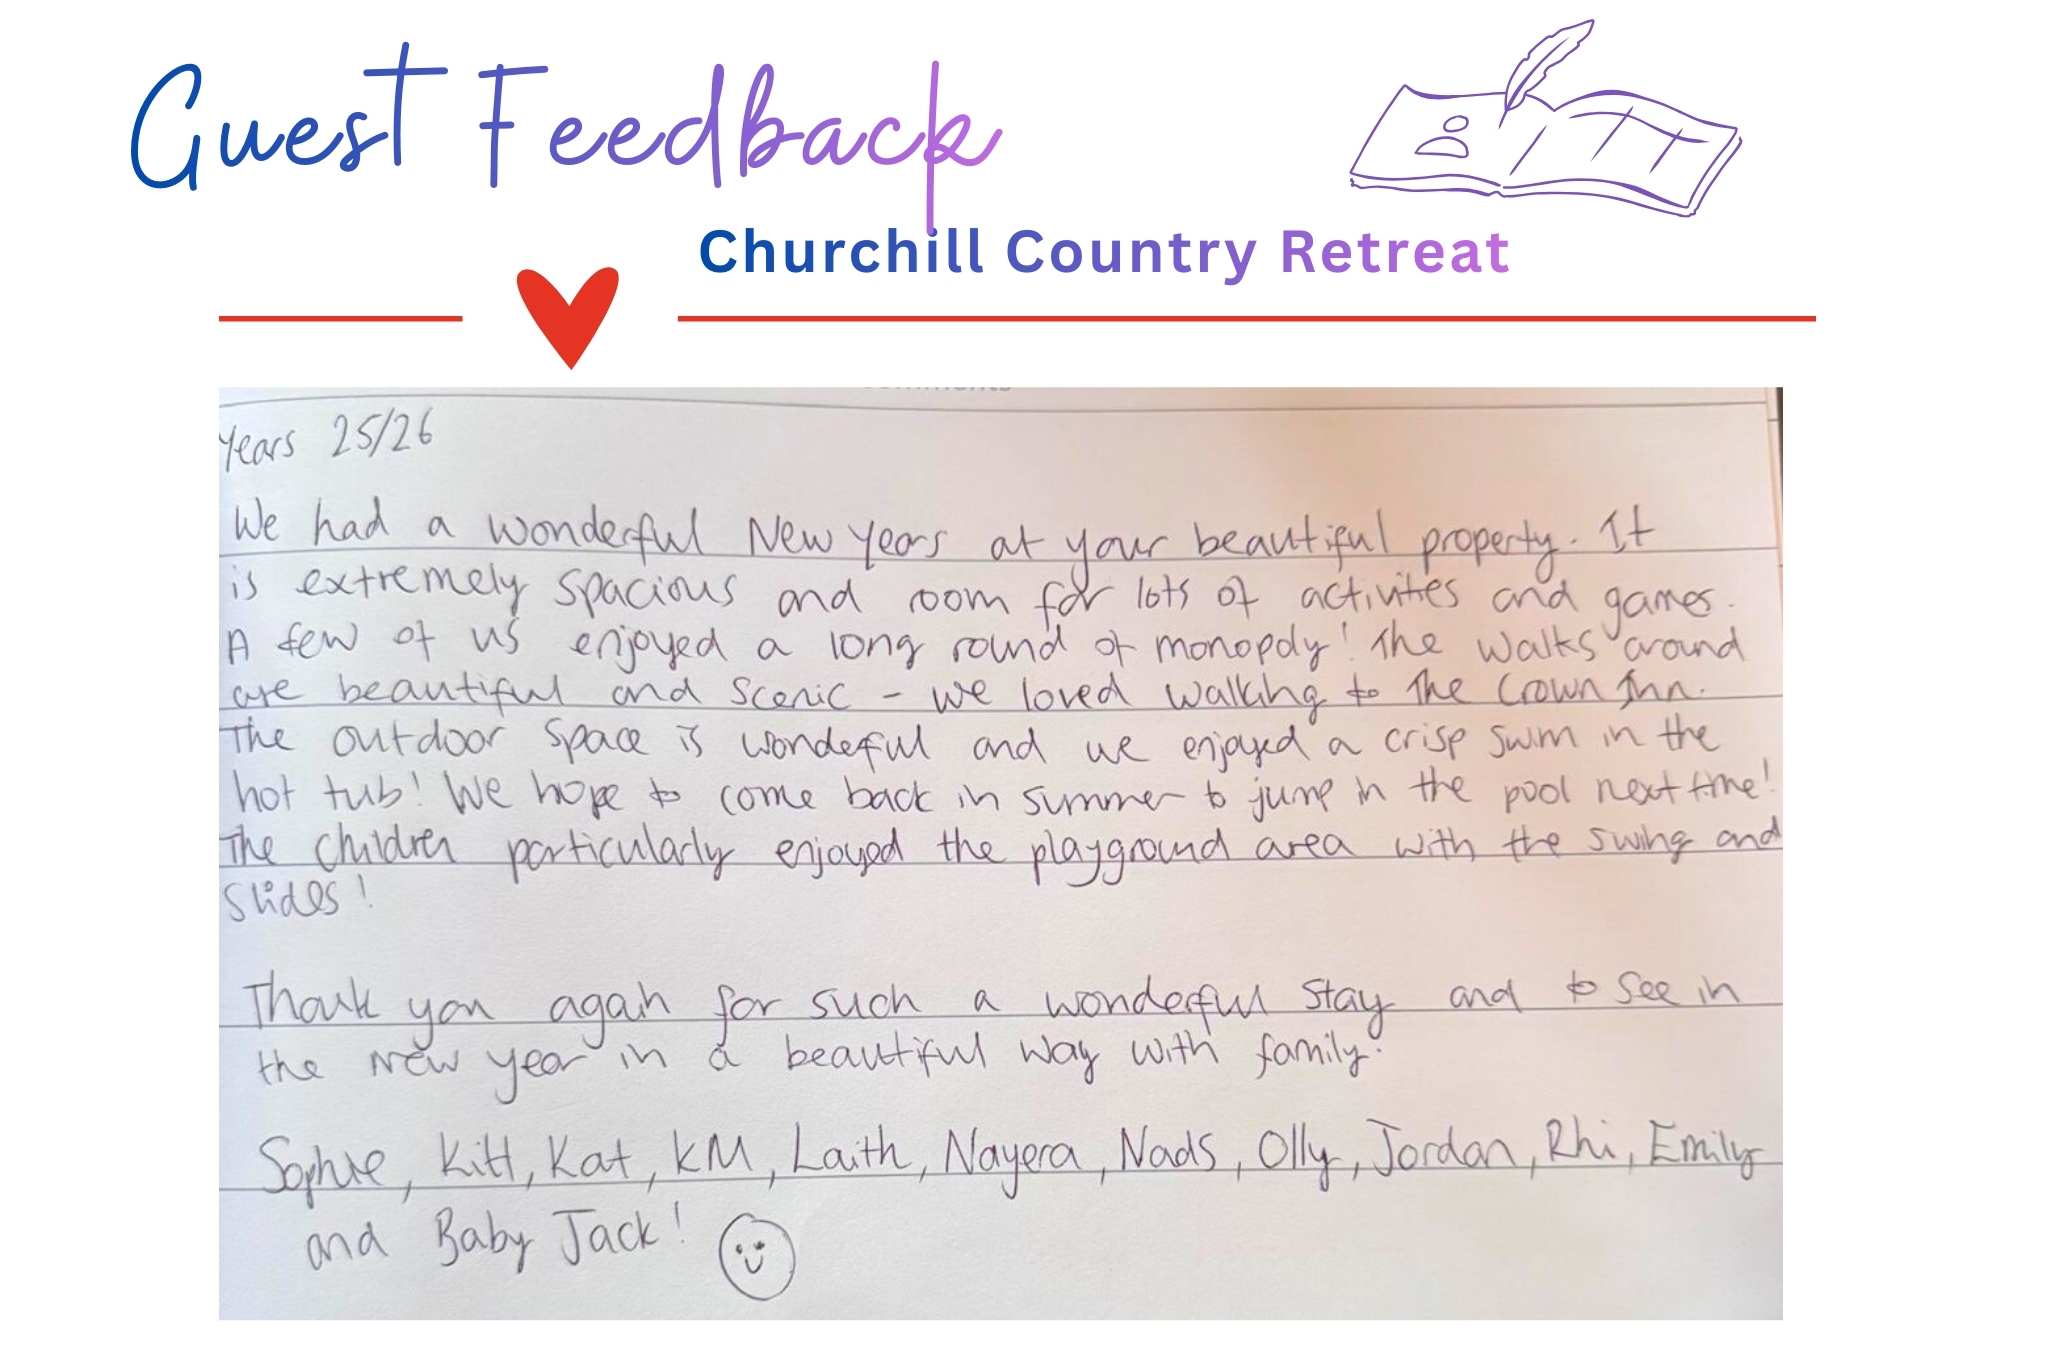 Guest Feedback
Churchill Country Retreat
Years 25/26
We had a wonderful New Years at your beautiful property. It
is extremely spacious and room for lots of activities and games.
A few of us enjoyed a long round of monopoly! The walks around
are beautiful and scenic - we loved walking to The Crown Inn.
The outdoor space is wonderful and we enjoyed a crisp swim in the
hot tub! We hope to come back in summer to jump in the pool next time!
The children particularly enjoyed the playground area with the swing and
slides!
Thank you again for such a wonderful stay and to see in
the new year in a beautiful way with family.
Sophie, Kitt, Kat, KM, Laith, Nayera, Nads, Olly, Jordan, Rhi, Emily
and Baby Jack!